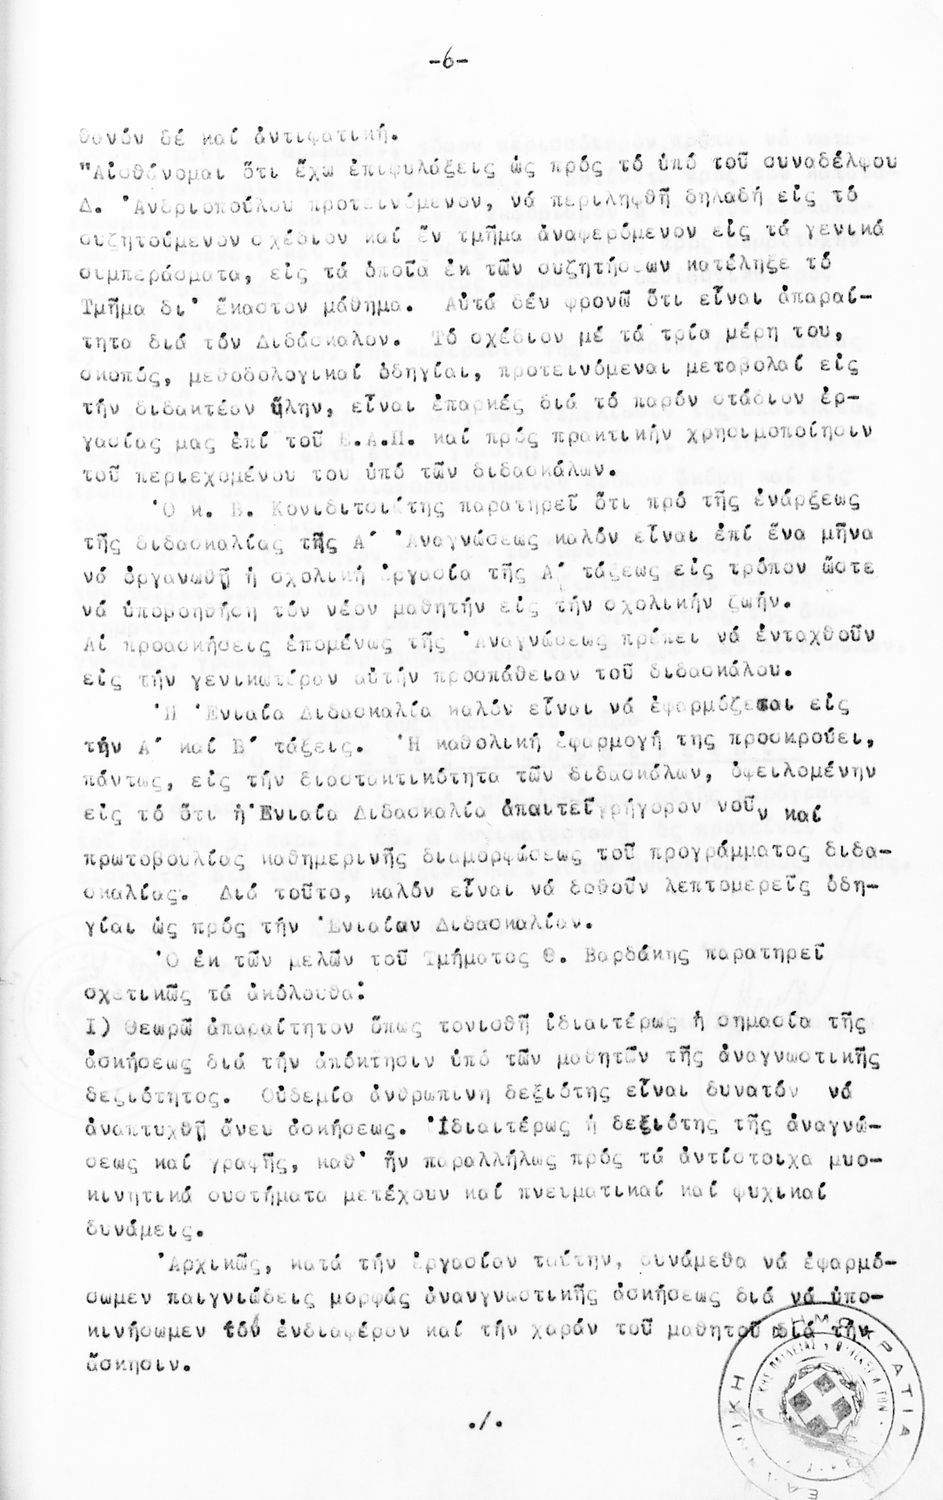 -6-
θονόν δέ καί ἀντιφατική.
"Αἰσθάνομαι ὅτι ἔχω ἐπιφυλάξεις ὡς πρός τό ὑπό τοῦ συναδέλφου
Δ. Ἀνδριοπούλου προτεινόμενον, νά περιληφθῇ δηλαδή εἰς τό
συζητούμενον σχέδιον καί ἕν τμῆμα ἀναφερόμενον εἰς τά γενικά
συμπεράσματα, εἰς τά ὁποῖα ἐκ τῶν συζητήσεων κατέληξε τό
Τμῆμα δι' ἕκαστον μάθημα. Αὐτά δέν φρονῶ ὅτι εἶναι ἀπαραί-
τητα διά τόν Διδάσκαλον. Τό σχέδιον μέ τά τρία μέρη του,
σκοπός, μεθοδολογικαί ὁδηγίαι, προτεινόμεναι μεταβολαί εἰς
τήν διδακτέον ὕλην, εἶναι ἐπαρκές διά τό παρόν στάδιον ἐρ-
γασίας μας ἐπί τοῦ Ε.Α.Π. καί πρός πρακτικήν χρησιμοποίησιν
τοῦ περιεχομένου του ὑπό τῶν διδασκάλων.
Ὁ κ. Β. Κονιδιτσιώτης παρατηρεῖ ὅτι πρό τῆς ἐνάρξεως
τῆς διδασκαλίας τῆς Α΄ Ἀναγνώσεως καλόν εἶναι ἐπί ἕνα μῆνα
νά ὀργανωθῇ ἡ σχολική ἐργασία τῆς Α΄ τάξεως εἰς τρόπον ὥστε
νά ὑποβοηθήσῃ τόν νέον μαθητήν εἰς τήν σχολικήν ζωήν.
Αἱ προασκήσεις ἑπομένως τῆς Ἀναγνώσεως πρέπει νά ἐνταχθοῦν
εἰς τήν γενικωτέραν αὐτήν προσπάθειαν τοῦ διδασκάλου.
Ἡ Ἑνιαία Διδασκαλία καλόν εἶναι νά ἐφαρμόζεται εἰς
τήν Α΄ καί Β΄ τάξεις. Ἡ καθολική ἐφαρμογή της προσκρούει,
πάντως, εἰς τήν διστακτικότητα τῶν διδασκάλων, ὀφειλομένην
εἰς τό ὅτι ἡ Ἑνιαία Διδασκαλία ἀπαιτεῖ γρήγορον νοῦν καί
πρωτοβουλίας καθημερινῆς διαμορφώσεως τοῦ προγράμματος διδα-
σκαλίας. Διά τοῦτο, καλόν εἶναι νά δοθοῦν λεπτομερεῖς ὁδη-
γίαι ὡς πρός τήν Ἑνιαίαν Διδασκαλίαν.
Ὁ ἐκ τῶν μελῶν τοῦ Τμήματος Θ. Βαρδάκης παρατηρεῖ
σχετικῶς τά ἀκόλουθα:
I) Θεωρῶ ἀπαραίτητον ὅπως τονισθῇ ἰδιαιτέρως ἡ σημασία τῆς
ἀσκήσεως διά τήν ἀπόκτησιν ὑπό τῶν μαθητῶν τῆς ἀναγνωστικῆς
δεξιότητος. Οὐδεμία ἀνθρωπινη δεξιότης εἶναι δυνατόν νά
ἀναπτυχθῇ ἄνευ ἀσκήσεως. Ἰδιαιτέρως ἡ δεξιότης τῆς ἀναγνώ-
σεως καί γραφῆς, καθ' ἥν παραλλήλως πρός τά ἀντίστοιχα μυο-
κινητικά συστήματα μετέχουν καί πνευματικαί καί ψυχικαί
δυνάμεις.
Ἀρχικῶς, κατά τήν ἐργασίαν ταύτην, δυνάμεθα νά ἐφαρμό-
σωμεν παιγνιώδεις μορφάς ἀνανγνωστικῆς ἀσκήσεως διά νά ὑπο-
κινήσωμεν τόν ἐνδιαφέρον καί τήν χαράν τοῦ μαθητοῦ διά τήν
ἄσκησιν.
./.
ΕΛΛΗΝΙΚΗ ΔΗΜΟΚΡΑΤΙΑ